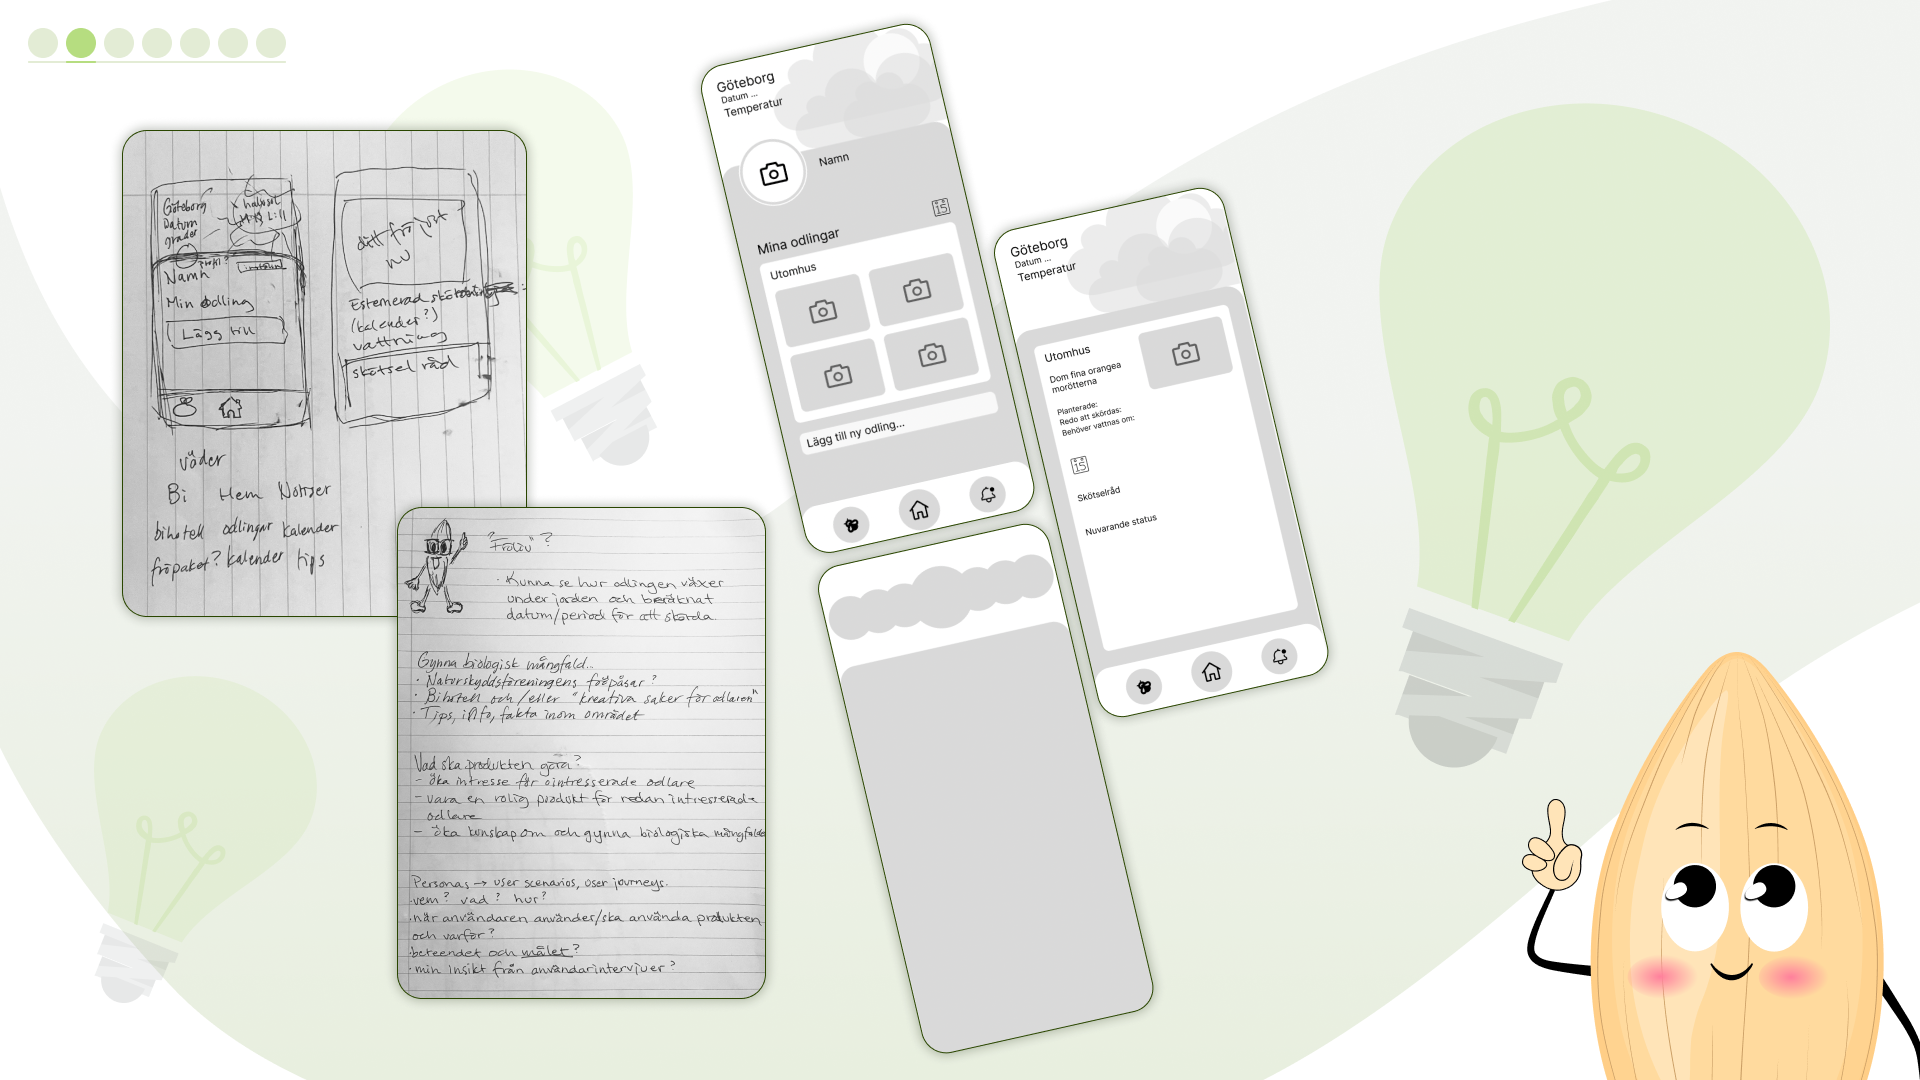 Göteborg
Datum
grader
halvsol
Namn
Min odling
Lägg till
ditt frö just
nu
Estemerad
(kalender?)
vattning
skötsel råd
väder
Bi Hem Notiser
bihotell odlingar kalender
fröpaket? kalender tips
?
· Kunna se hur odlingen växer
under jorden och beräknat
datum/period för att skörda.
Gynna biologisk mångfald...
· Naturskyddsföreningens fröpåsar?
· Bihotell och/eller "kreativa saker för odlaren"
· Tips, info, fakta inom området
Vad ska produkten göra?
- öka intresse för ointresserade odlare
- vara en rolig produkt för redan intresserade
odlare
- öka kunskap om och gynna biologiska
Personas → user scenarios, user journeys.
· vem? vad? hur?
· när användaren använder/ska använda produkten
och varför?
· beteendet och målet?
· min insikt från användarintervjuer?
Göteborg
Datum ...
Temperatur
Namn
15
Mina odlingar
Utomhus
Lägg till ny odling...
Göteborg
Datum ...
Temperatur
Utomhus
Dom fina orangea
morötterna
Planterade:
Redo att skördas:
Behöver vattnas om:
15
Skötselråd
Nuvarande status